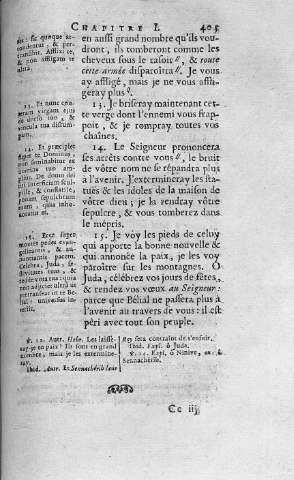 CHAPITRE I. 405
affligam te
en aussi grand nombre qu'ils vou-
dront, ils tomberont comme les
cheveux sous le rasoir, & toute
cette armée disparoîtra. Je vous
ay affligé, mais je ne vous affli-
geray plus.
13. Et nunc con-
teram virgam ejus
de dorso tuo, &
vincula tua disrum-
pam.
13. Je briseray maintenant cet-
te verge dont l'ennemi vous frap-
poit, & je rompray toutes vos
chaînes.
14. Et præcipiet
super te Dominus,
non seminabitur ex
nomine tuo am-
plius. De domo dei
tui interficiam sculp-
tile, & conflatile,
ponam sepulchrum
tuum, quia inho-
noratus es.
14. Le Seigneur prononcera
ses arrêts contre vous, le bruit
de vôtre nom ne se répandra plus
à l'avenir. J'extermineray les sta-
tuës & les idoles de la maison de
vôtre dieu; je la rendray vôtre
sepulcre, & vous tomberez dans
le mépris.
15. Ecce super
montes pedes evan-
gelizantis, & an-
nuntiantis pacem.
Celebra, Juda,
festivitates tuas, &
redde vota tua: quia
non adjiciet ultra ut
pertranseat in te Be-
lial: universus in-
teriit.
15. Je voy les pieds de celuy
qui apporte la bonne nouvelle &
qui annonce la paix, je les voy
paroître sur les montagnes. O
Juda, célébrez vos jours de fêtes,
& rendez vos vœux au Seigneur:
parce que Bélial ne passera plus à
l'avenir au travers de vous: il est
péri avec tout son peuple.
℣. 12. Autr. Hebr. Les laisse-
ray-je en paix? Ils sont en grand
nombre, mais je les extermine-
ray.
Ibid. Autr. Et Sennachérib leur
Roy sera contraint de s'enfuir.
Ibid. Expl. ô Juda.
℣. 14. Expl. ô Ninive, ou: ô
Sennachérib.
Cc iij